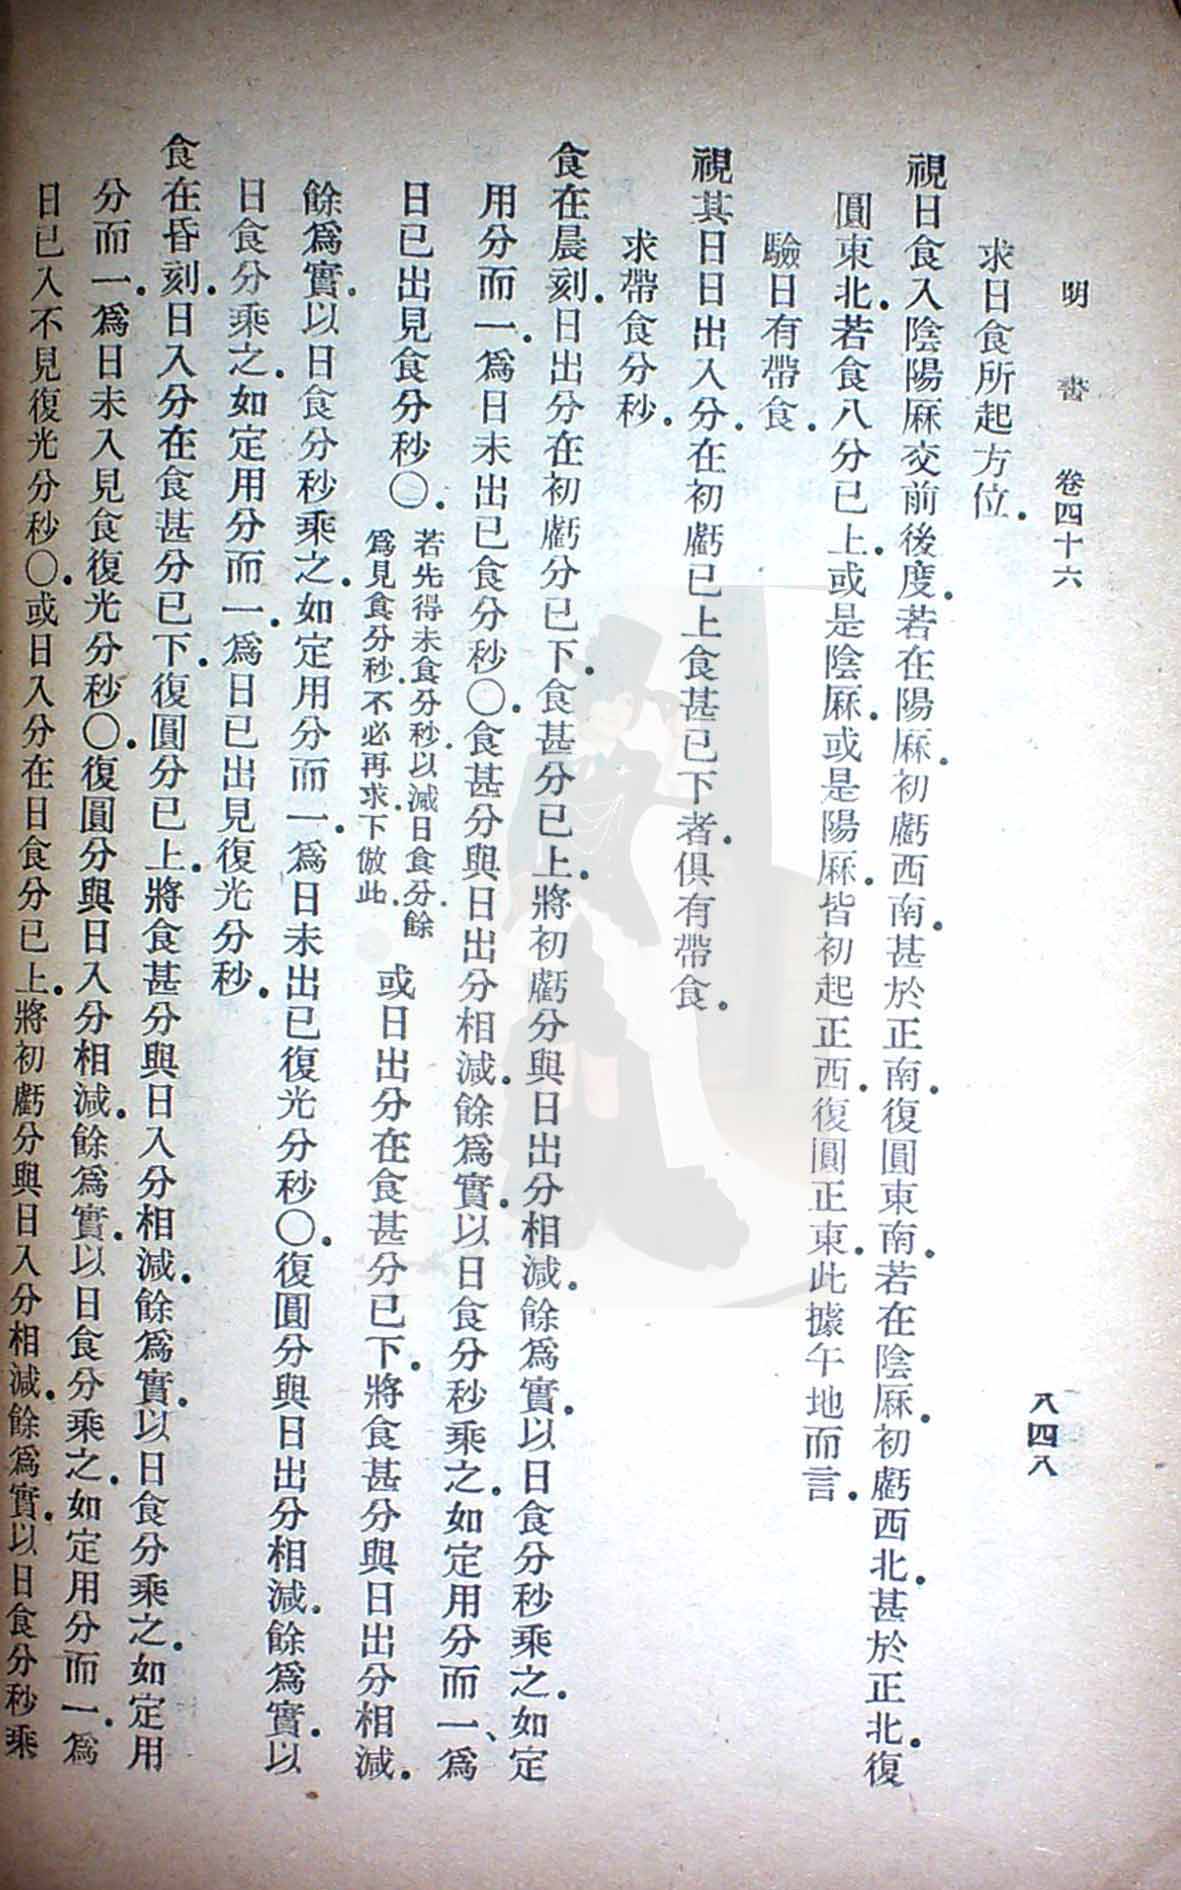 明書　卷四十六
八四八
求日食所起方位．
視日食入陰陽厤交前後度．若在陽厤．初虧西南．甚於正南．復圓東南．若在陰厤．初虧西北．甚於正北．復
圓東北．若食八分已上．或是陰厤．或是陽厤．皆初起正西．復圓正東．此據午地而言．
驗日有帶食．
視其日日出入分．在初虧已上食甚已下者．俱有帶食．
求帶食分秒．
食在晨刻．日出分在初虧分已下．食甚分已上．將初虧分與日出分相減．餘爲實．以日食分秒乘之．如定
用分而一．爲日未出已食分秒〇．食甚分與日出分相減．餘爲實．以日食分秒乘之．如定用分而一、爲
日已出見食分秒〇．若先得未食分秒．以減日食分．餘
爲見食分秒．不必再求．下倣此．
或日出分在食甚分已下．將食甚分與日出分相減．
餘爲實．以日食分秒乘之．如定用分而一．爲日未出已復光分秒〇．復圓分與日出分相減．餘爲實．以
日食分乘之．如定用分而一．爲日已出見復光分秒．
食在昏刻．日入分在食甚分已下．復圓分已上．將食甚分與日入分相減．餘爲實．以日食分乘之．如定用
分而一．爲日未入見食復光分秒〇．復圓分與日入分相減．餘爲實．以日食分乘之．如定用分而一．爲
日已入不見復光分秒〇．或日入分在日食分已上．將初虧分與日入分相減．餘爲實．以日食分秒乘